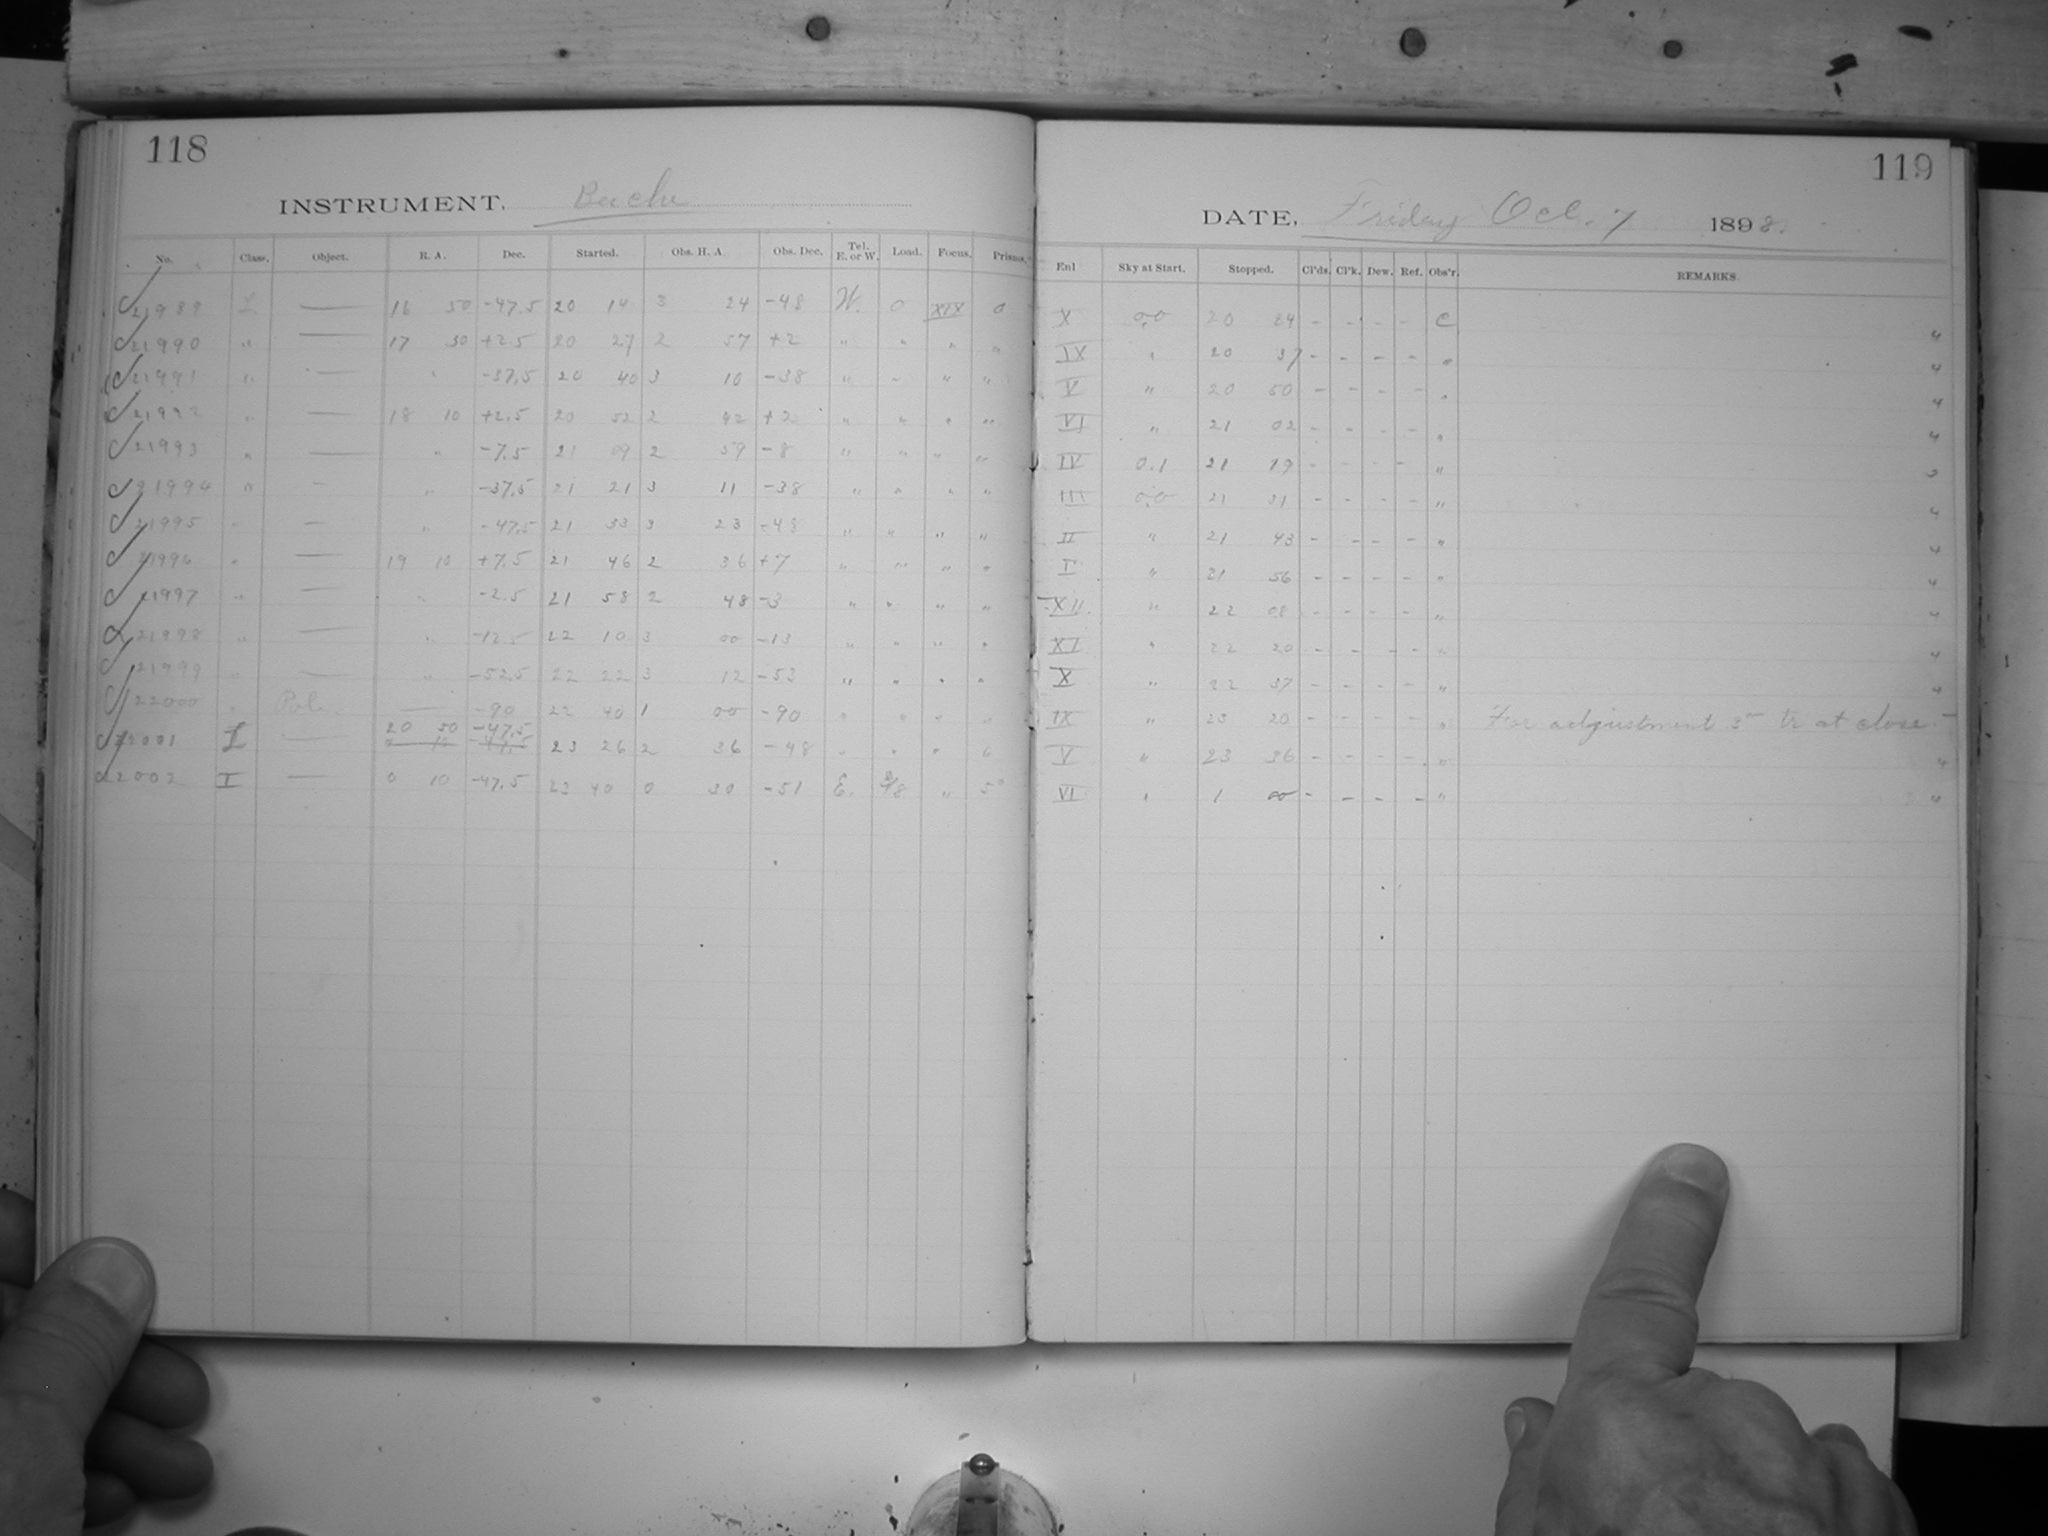 118
INSTRUMENT. Bache
No. Class. Object. R. A. Dec. Started. Obs. H. A. Obs. Dec. Tel. E. or W. Load. Focus. Prisms.
21989 L — 16 50 -47.5 20 14 3 24 -48 W. 0 XIX 0
21990 " — 17 30 +2.5 20 27 2 57 +2 " " " "
21991 " — " -37.5 20 40 3 10 -38 " " " "
21992 " — 18 10 +2.5 20 52 2 42 +2 " " " "
21993 " — " -7.5 21 09 2 59 -8 " " " "
21994 " — " -37.5 21 21 3 11 -38 " " " "
21995 " — " -47.5 21 33 3 23 -48 " " " "
21996 " — 19 10 +7.5 21 46 2 36 +7 " " " "
21997 " — " -2.5 21 58 2 48 -3 " " " "
21998 " — " -12.5 22 10 3 00 -13 " " " "
21999 " — " -52.5 22 22 3 12 -53 " " " "
22000 " Pole — -90 22 40 1 00 -90 " " " "
20 50 -47.5
22001 I — 23 26 2 36 -48 " " "
22002 I — 0 10 -47.5 23 40 0 30 -51 E. " 5°
119
DATE, Friday Oct. 7 1898.
Enl Sky at Start. Stopped. Cl'ds. Cl'k. Dew. Ref. Obs'r. REMARKS.
X 0.0 20 24 - - - - C "
IX " 20 37 - - - - " "
V " 20 50 - - - - " "
VI " 21 02 - - - - " "
IV 0.1 21 19 - - - - " "
III 0.0 21 31 - - - - " "
II " 21 43 - - - - " "
I " 21 56 - - - - " "
XII " 22 08 - - - - " "
XI " 22 20 - - - - " "
X " 22 37 - - - - " "
IX " 23 20 - - - - " For adjustment 3m tr at close
V " 23 36 - - - - " "
VI " 1 00 - - - - " "